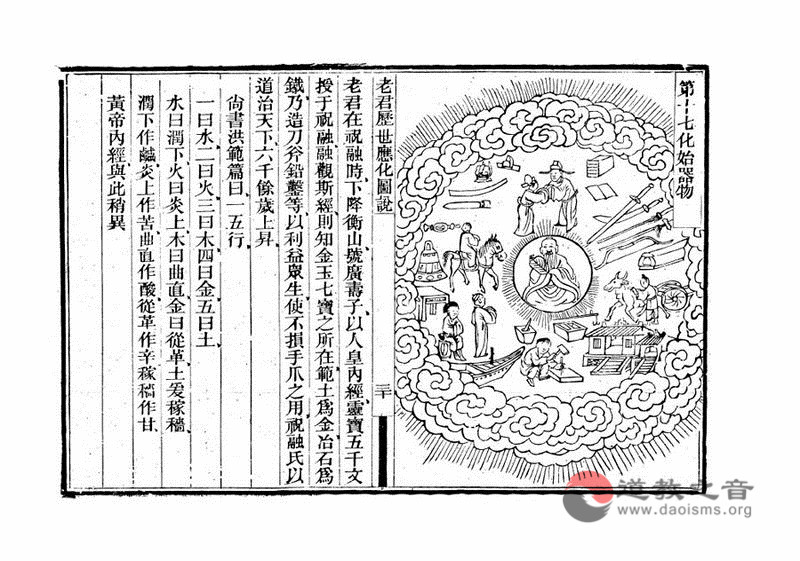 第十七化始器物
老君歷世應化圖說
三十
老君在祝融時下降衡山號廣壽子以人皇內經靈寶五千文
授于祝融融觀斯經則知金玉七寶之所在範土為金冶石為
鐵乃造刀斧鉛鑿等以利益眾生使不損手爪之用祝融氏以
道治天下六千餘歲上昇
尚書洪範篇曰一五行
一曰水二曰火三曰木四曰金五曰土
水曰潤下火曰炎上木曰曲直金曰從革土爰稼穡
潤下作鹹炎上作苦曲直作酸從革作辛稼穡作甘
黃帝內經與此稍異
道教之音
www.daoisms.org